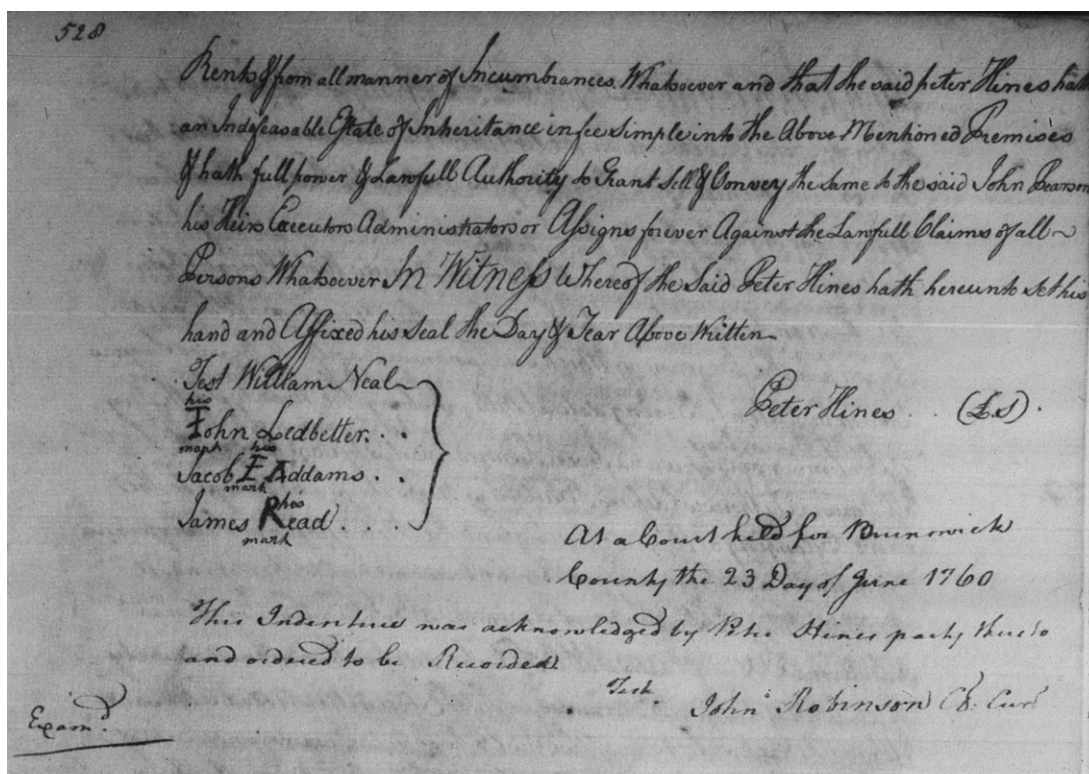 528
Rents & from all manner of Incumbrances Whatsoever and that the said peter Hines hath
an Indefeasable Estate of Inheritance in fee Simple into the Above Mentioned Premises
& hath full power & Lawfull Authority to Grant Sell & Convey the same to the said John Pearson
his Heirs Executors Administrators or Assigns forever Against the Lawfull Claims of all
Persons Whatsoever In Witness Whereof the Said Peter Hines hath hereunto set his
hand and Affixed his Seal the Day & Year Above Written
Test William Neal
his
John Ledbetter . .
mark his
Jacob I Addams . .
mark
his
James Read . . . .
mark
Peter Hines . . (L.S) .
At a Court held for Brunswick
County the 23 Day of June 1760
This Indenture was acknowledged by Peter Hines party thereto
and ordered to be Recorded
Test
John Robinson Ck. Cur
Exam.d